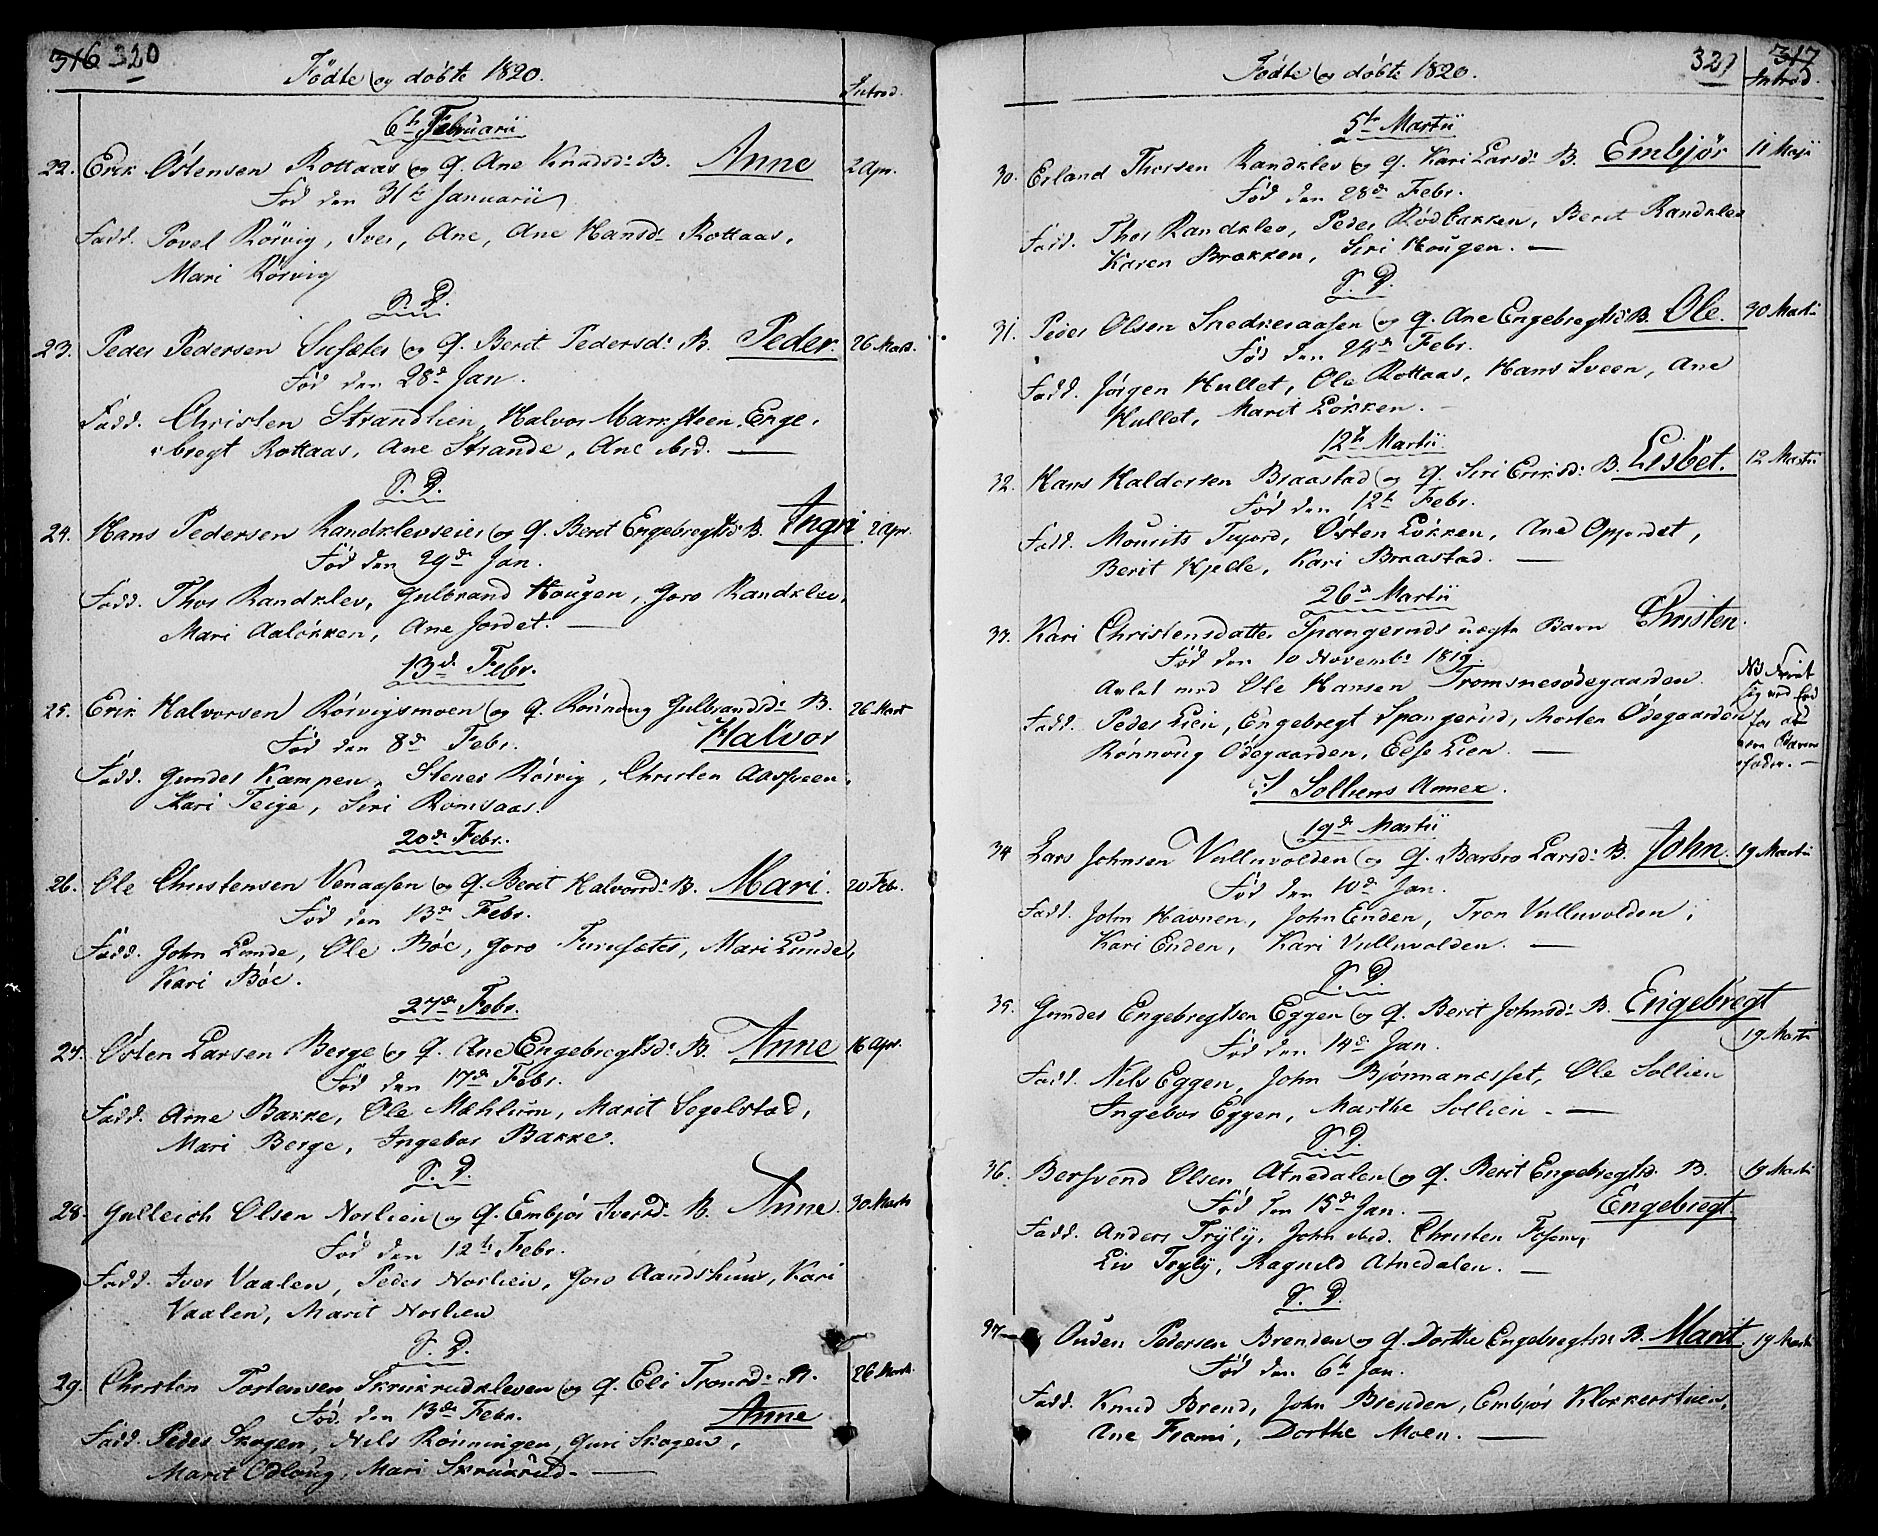 316 320
Födte og döbte 1820.
Introd.
6te Februarii
22. Erik Östensen Rottaas og q. Ane Knudsdr B. Anne 2 Apr.
Föd den 31te Januarii
Fadd. Povel Rörvig, Iver, Ane, Ane Hansdr Rottaas,
Mari Rörvig
S. D.
23. Peder Pedersen og q. Berit Pedersdr B. Peder. 26 Marts.
Föd den 28de Jan.
Fadd. Christen Strandlien, Halvor Marksteen, Enge-
bregt Rottaas, Ane Strande, Ane ibid.
S. D.
24. Hans Pedersen Randklevseier og q. Berit Engebregtsdr B. Ingri 2 Apr.
Föd den 29de Jan.
Fadd. Thor Randklev, Gulbrand Hougen, Goro Randklev,
Mari Aalökken, Ane Jordet.
13de Febr.
25. Erik Halvorsen Rörvigsmoen og q. Rönnoug Gulbrandsdr B. 26 Mart
Föd den 8de Febr. Halvor
Fadd. Gunder Kampen, Stener Rörvig, Christen Aassveen,
Kari Teige, Siri Romsaas.
20de Febr.
26. Ole Christensen Venaasen og q. Berit Halvorsdr B. Mari. 20 Febr.
Föd den 13de Febr.
Fadd. John Lunde, Ole Böe, Goro Furusæter, Mari Lunde,
Kari Böe.
27de Febr.
27. Östen Larsen Berge og q. Ane Engebregtsdr B. Anne 16 Apr.
Föd den 17de Febr.
Fadd. Arne Bakke, Ole Mæhlum, Marit Segelstad,
Mari Berge, Ingebor Bakke.
S. D.
28. Gulleich Olsen Norlien og q. Embjör Iversdr B. Anne 30 Marts
Föd den 12te Febr.
Fadd. Iver Vaalen, Peder Norlien, Goro Aandshuus, Kari
Vaalen, Marit Norlien
S. D.
29. Christen Tostensen Skrukrudkleven og q. Eli Tronsdr B. 26 Marts
Föd den 13de Febr. Anne
Fadd. Peder Skogen, Nils Rönningen, Guri Skogen,
Marit Odloug, Mari Skrukrud.
Födte og döbte 1820.
321 317
Introd.
5te Martii
30. Erland Thorsen Randklev og q. Kari Larsdr B. Embjör 11 Maji
Föd den 28de Febr.
Fadd. Thor Randklev, Peder Rödbakken, Berit Randklev
Karen Brækken, Siri Hougen.
S. D.
31. Peder Olsen Snedkeraasen og q. Ane Engebregtsdr B. Ole. 30 Martii
Föd den 28de Febr.
Fadd. Jörgen Hullet, Ole Rottaas, Hans Sveen, Ane
Hullet, Marit Lökken.
12te Martii
32. Hans Haldorsen Braastad og q. Siri Eriksdr B. Lisbet. 12 Martii
Föd den 12te Febr.
Fadd. Mourits Tujord, Östen Lökken, Ane Opjordet,
Berit Kjelle, Kari Braastad.
26de Martii
33. Kari Christensdatter Spangeruds uægte Barn Christen.
Föd den 10 Novembr 1819.
Avlet med Ole Hansen Tromsnesödegaarden
Fadd. Peder Lien, Engebregt Spangerud, Morten Ödegaarden
Rönnoug Ödegaarden, Else Lien.
NB
sig ved Eed
for at
være Barne
fader.
I Solliens Annex.
19de Martii
34 Lars Johnsen Vulluvolden og q. Barbro Larsdr B. John. 19 Martii
Föd den 10de Jan.
Fadd. John Havnen, John Enden, Tron Vulluvolden,
Kari Enden, Kari Vulluvolden.
S. D.
35. Gunder Engebregtsen Eggen og q. Berit Johnsdr B. Engebregt
Föd den 14de Jan. 19 Martii
Fadd. Nils Eggen, John Björnnanæsset, Ole Sollien
Ingebor Eggen, Marthe Sollien.
S. D.
36. Bersvend Olsen Atnedalen og q. Berit Engebregtsdr B. 19 Martii
Föd den 15de Jan. Engebregt
Fadd. Anders Tryly, John ibid. Christen Fosen,
Liv Tryly, Ragnild Atnedalen.
S. D.
37 Ouden Pedersen Brenden og q. Dorthe Engebregtsdr B. Marit 19 Marts
Föd den 6te Jan.
Fadd. Knud Brend, John Brenden, Embjör Klokkerstuen,
Ane Frami, Dorthe Moen.